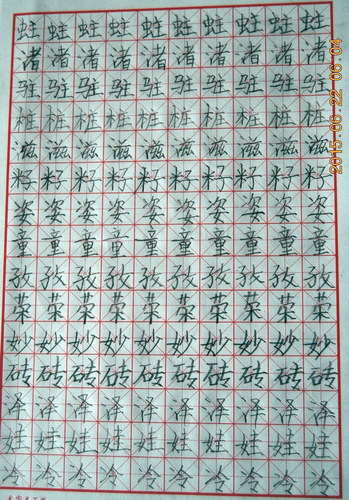 蛀蛀蛀蛀蛀蛀蛀蛀蛀蛀
渚渚渚渚渚渚渚渚渚渚
驻驻驻驻驻驻驻驻驻驻
桩桩桩桩桩桩桩桩桩桩
滋滋滋滋滋滋滋滋滋滋
籽籽籽籽籽籽籽籽籽籽
姿姿姿姿姿姿姿姿姿姿
童童童童童童童童童童
孜孜孜孜孜孜孜孜孜孜
荣荣荣荣荣荣荣荣荣荣
妙妙妙妙妙妙妙妙妙妙
砖砖砖砖砖砖砖砖砖砖
泽泽泽泽泽泽泽泽泽泽
娃娃娃娃娃娃娃娃娃娃
冷冷冷冷冷冷冷冷冷冷
2015.06.22 06:04